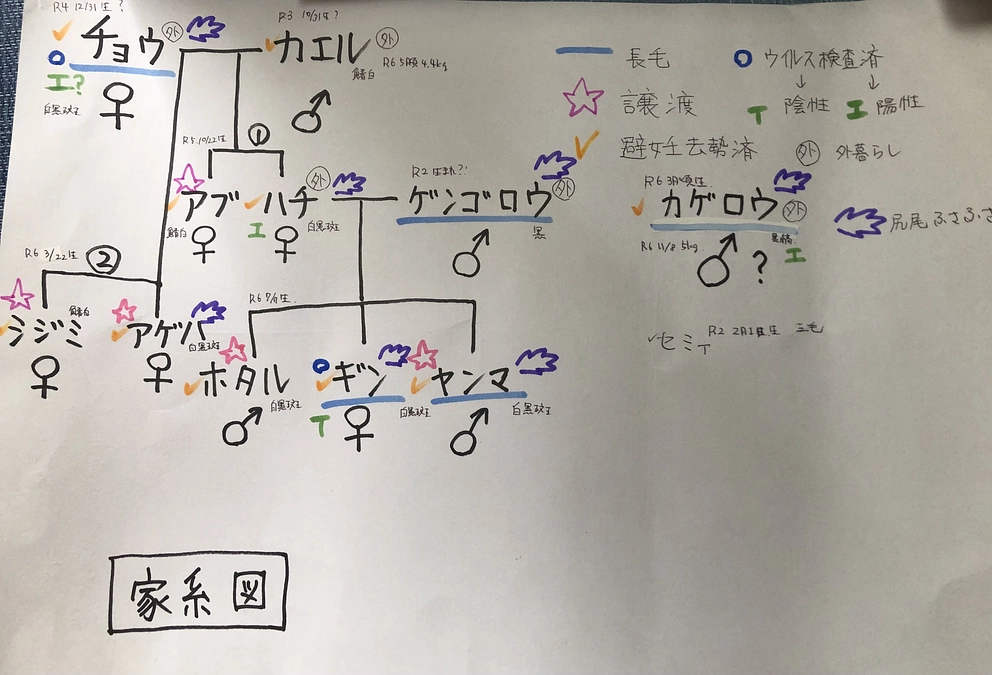 R4 12/31生?
チョウ 外
エ?
白黒斑
♀
R3 10/31生?
カエル 外
鯖白
R6 5月頃 4.4kg
♂
長毛
ウイルス検査済
↓ ↓
譲渡
T 陰性 エ 陽性
避妊去勢済
外 外暮らし
尻尾ふさふさ
R5.10/22生
①
アブ
鯖白
♀
ハチ 外
エ
白黒斑
♀
R2 生まれ?
ゲンゴロウ 外
黒
♂
R6 3月頃生
カゲロウ 外
R6 11/8 5kg
エ
♂?
R6 3/22生
②
シジミ
鯖白
♀
アゲハ
白黒斑
♀
R6 7/9生
ホタル
白黒斑
♂
ギン
T
白黒斑
♀
ヤンマ
白黒斑
♂
セミ T
R2 2月1日生 三毛
家系図